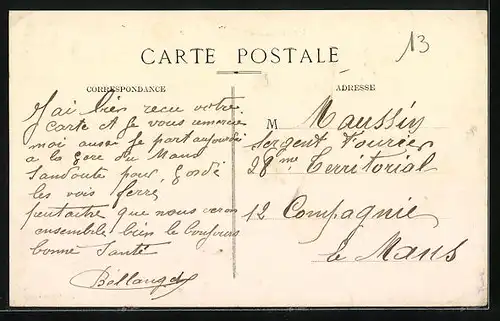 CARTE POSTALE
13
CORRESPONDANCE
J'ai bien recu votre
carte et je vous remercie
moi aussi je part aujourdui
a la gare du Mans
sandoute pour gardé
les vois ferre
peutaitre que nous veron
ensemble bien le bonjours
bonne Santé
Bellanger
ADRESSE
M Maussin
sergent Fourier
28me Territorial
12 Compagnie
le Mans